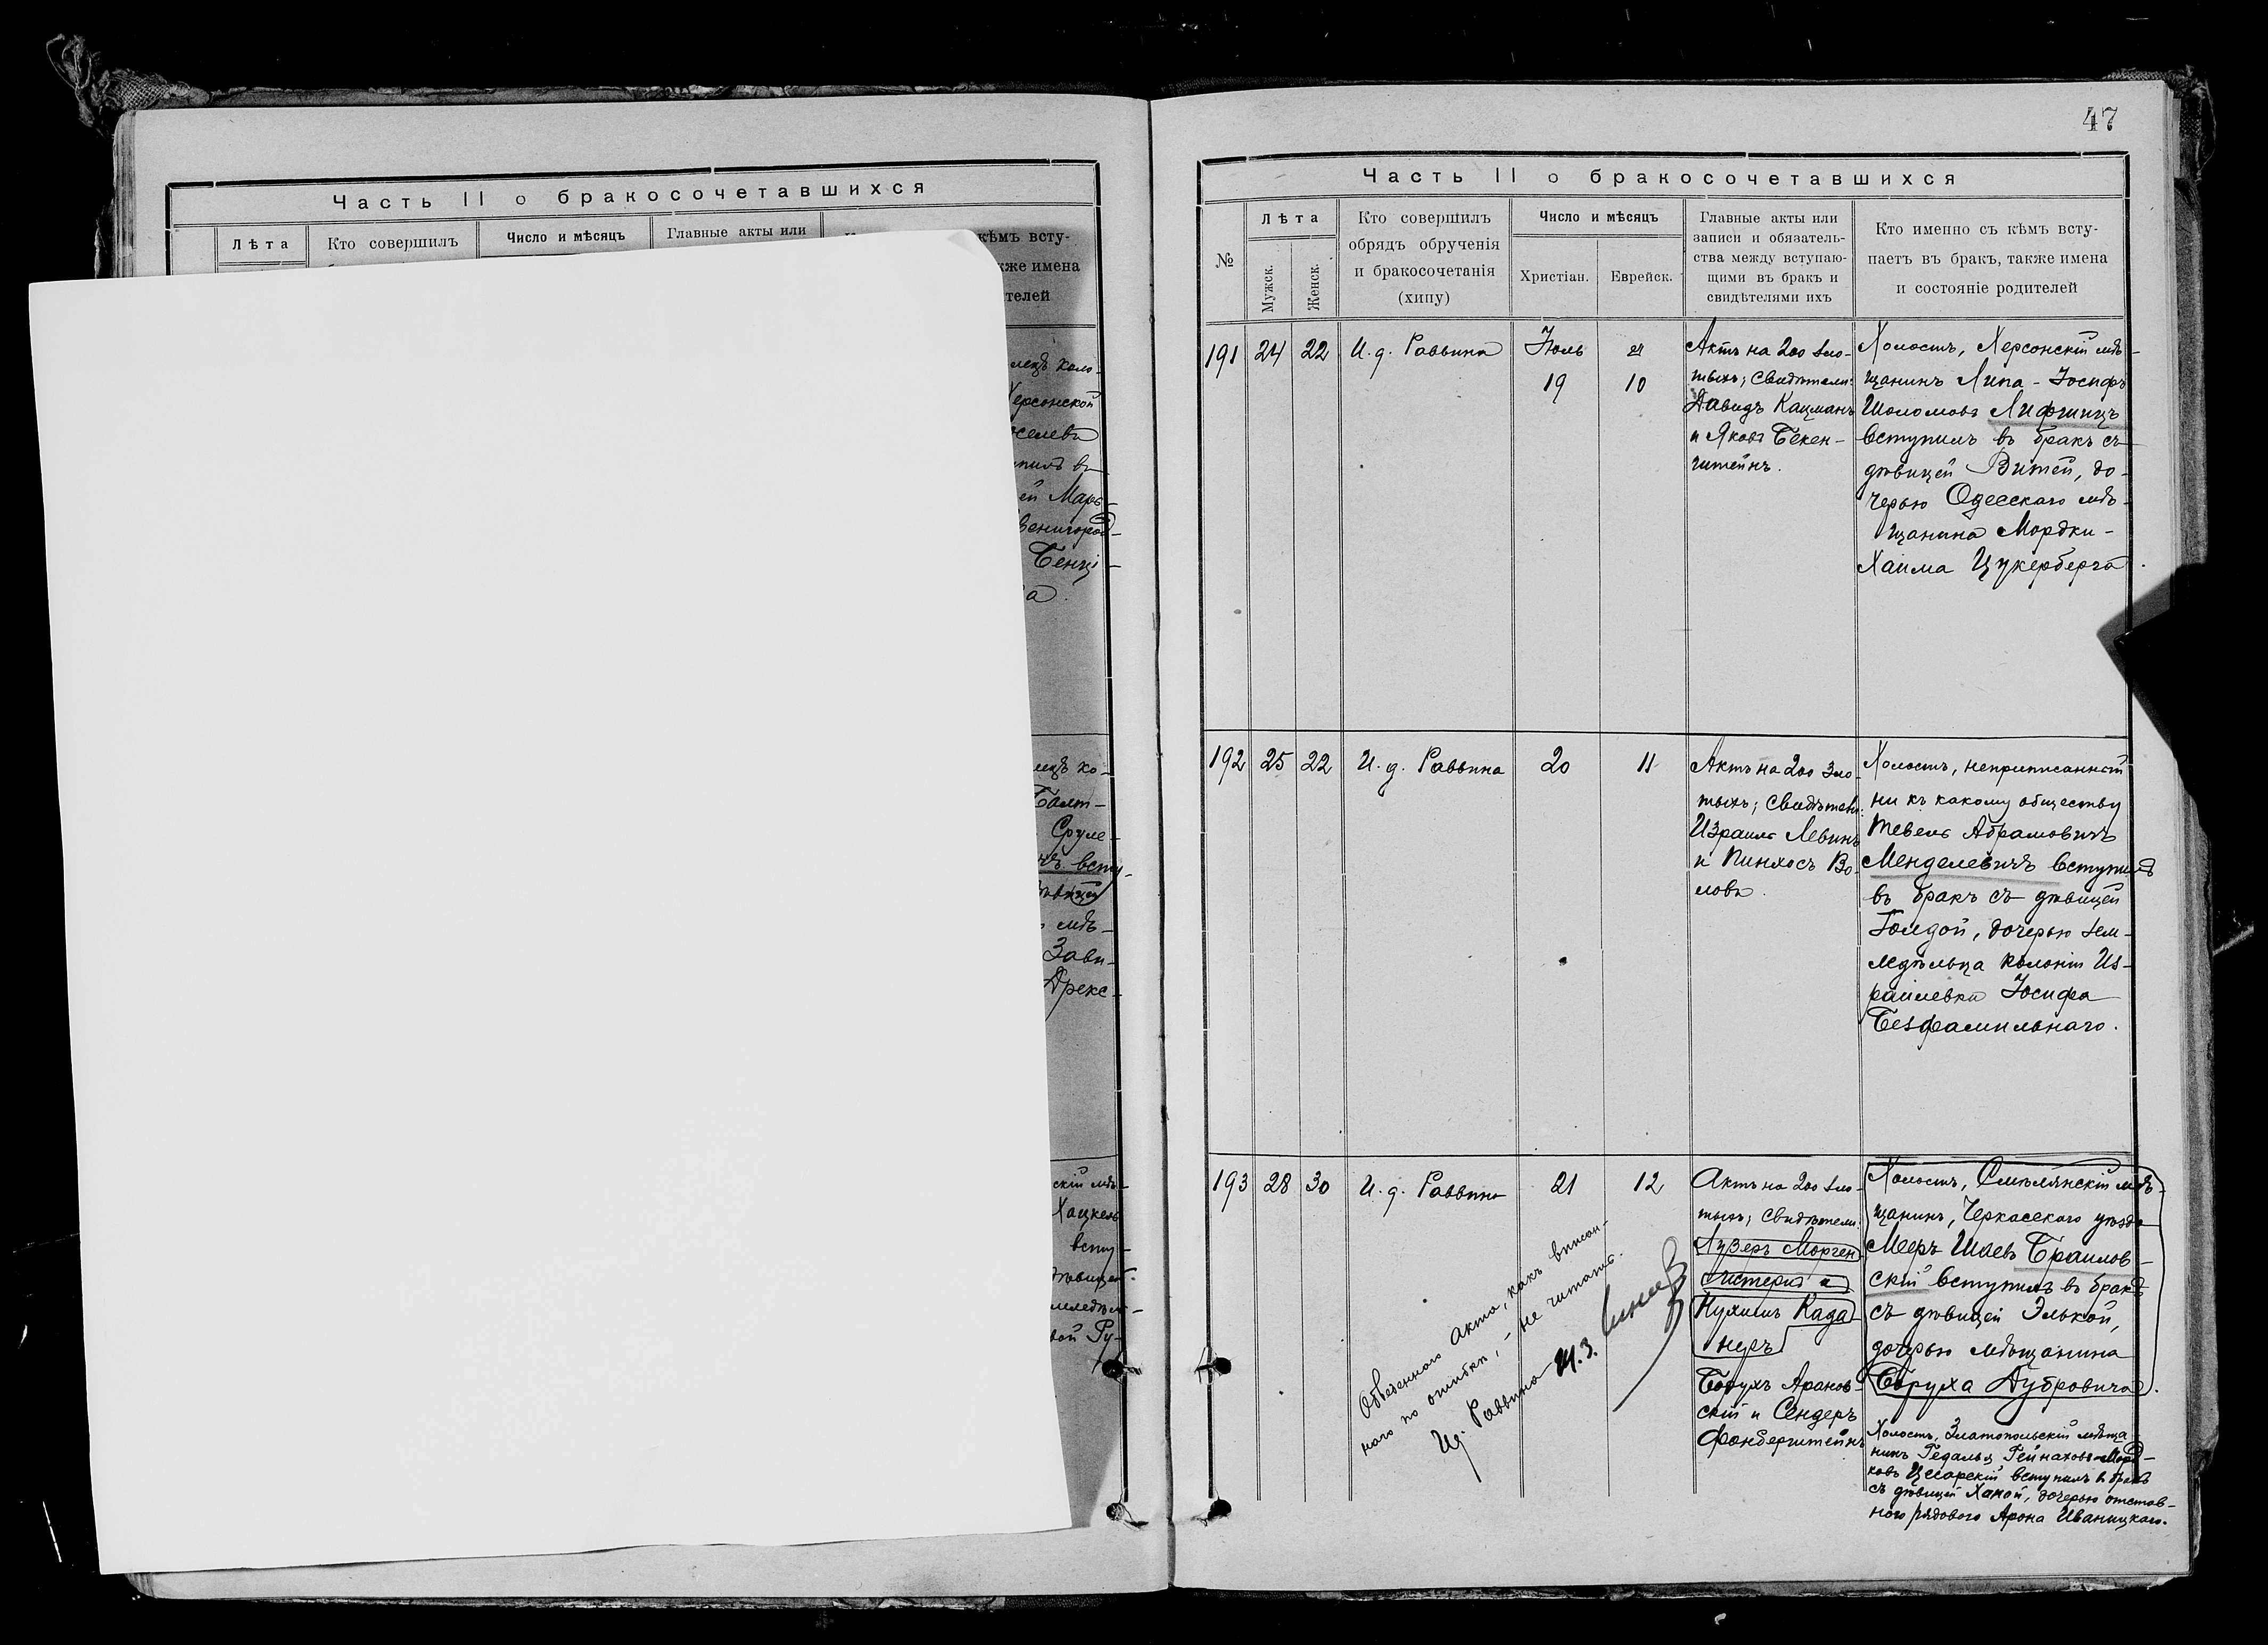 Часть II о бракосочетавшихся
Лѣта
Кто совершилъ
Число и мѣсяцъ
Главные акты или
кѣмъ всту-
же имена
телей
лецъ коло-
Херсонской
селева
пилъ въ
ей Марь-
Звенигород-
Бенці-
а.
лецъ ко-
Балт-
Сруле-
чъ всту-
дѣвицей
мѣ-
Зави-
Дрекс-
скій мѣ-
Хацкель
всту-
дѣвицей
вой Ру-
47
Часть II о бракосочетавшихся
№
Лѣта
Мужск.
Женск.
Кто совершилъ
обрядъ обрученія
и бракосочетанія
(хипу)
Число и мѣсяцъ
Христіан.
Еврейск.
Главные акты или
записи и обязатель-
ства между вступаю-
щими въ бракъ и
свидѣтелями ихъ
Кто именно съ кѣмъ всту-
паетъ въ бракъ, также имена
и состояніе родителей
191
24
22
И. д. Раввина
Іюль
19
10
Актъ на 200 зло-
тыхъ; Свидѣтели:
Давидъ Кацманъ
и Яковъ Бекен-
штейнъ.
Холостъ, Херсонскій мѣ-
щанинъ Липа-Іосифъ
Шоломовъ Лифшицъ
вступилъ въ бракъ съ
дѣвицей Витей, до-
черью Одесскаго мѣ-
щанина Мордки-
Хаима Цукерберга.
192
25
22
И. д. Раввина
20
11
Актъ на 200 зло-
тыхъ; Свидѣтели:
Израиль Левинъ
и Пинхосъ Во-
ловъ.
Холостъ, неприписанный
ни къ какому обществу
Тевель Абрамовичъ
Менделевичъ вступилъ
въ бракъ съ дѣвицей
Голдой, дочерью зем-
ледѣльца колоніи Из-
раилевка Іосифа
Безфамильнаго.
193
28
30
И. д. Раввина
21
12
Актъ на 200 зло-
тыхъ; Свидѣтели:
Лузеръ Морген-
штернъ и
Нухимъ Када-
неръ
Борухъ Аранов-
скій и Сендеръ
Фонберштейнъ
Холостъ, Смѣлянскій мѣ-
щанинъ, Черкасскаго уѣзда
Мееръ Шаевъ Браилов-
скій вступилъ въ бракъ
съ дѣвицей Элькой,
дочерью мѣщанина
Боруха Дубровича.
Холостъ, Златопольскій мѣща-
нинъ Гедалья Гейнаховъ-Морд-
ковъ Цесарскій вступилъ въ бракъ
съ дѣвицей Ханой, дочерью отстав-
ного рядового Арона Иваницкаго.
Обведеннаго акта, какъ вписан-
наго по ошибки, - не читать.
И. д. Раввина